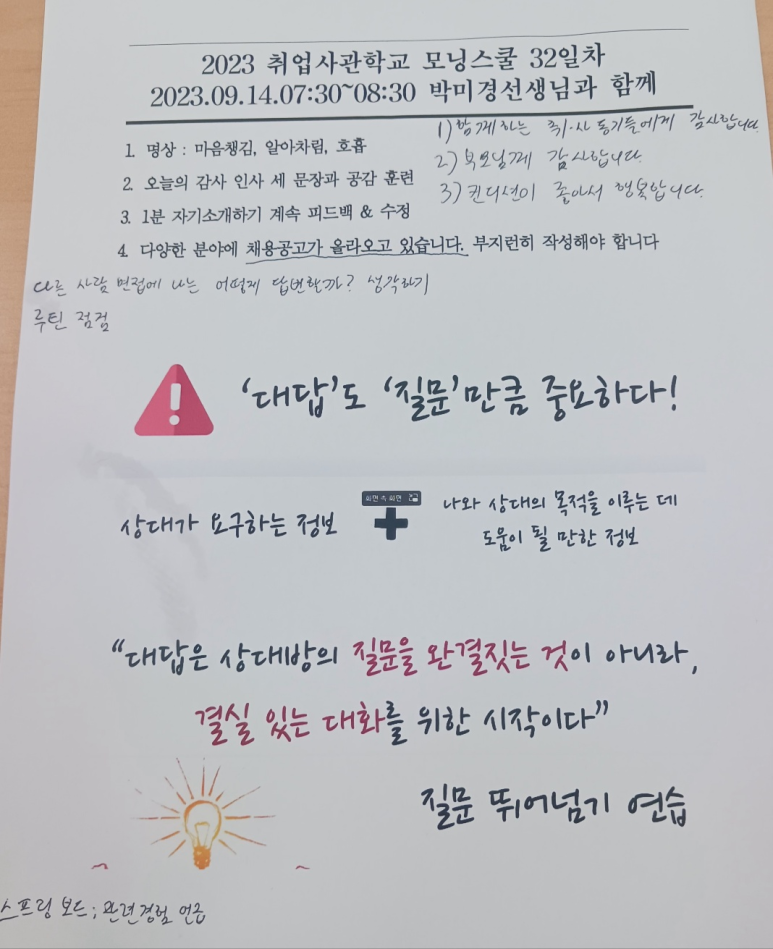 2023 취업사관학교 모닝스쿨 32일차
2023.09.14.07:30~08:30 박미경선생님과 함께
1) 함께하는 취·사 동기들에게 감사합니다.
2) 부모님께 감사합니다.
3) 컨디션이 좋아서 행복합니다.
1. 명상 : 마음챙김, 알아차림, 호흡
2. 오늘의 감사 인사 세 문장과 공감 훈련
3. 1분 자기소개하기 계속 피드백 & 수정
4. 다양한 분야에 채용공고가 올라오고 있습니다. 부지런히 작성해야 합니다
다른 사람 면접에 나는 어떻게 답변할까? 생각하기
루틴 점검
'대답'도 '질문'만큼 중요하다!
상대가 요구하는 정보
화면 속 화면
나와 상대의 목적을 이루는 데
도움이 될 만한 정보
"대답은 상대방의 질문을 완결짓는 것이 아니라,
결실 있는 대화를 위한 시작이다"
질문 뛰어넘기 연습
스프링 보드; 관련경험 언급